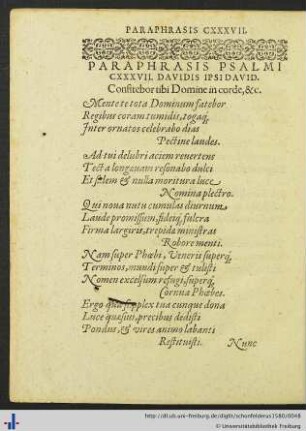 PARAPHRASIS CXXXVII.
PARAPHRASIS PSALMI
CXXXVII. DAVIDIS IPSI DAVID.
Confitebor tibi Domine in corde, &c.
Mente te tota Dominum fatebor
Regibus coram tumidis, togaq́;
Inter ornatos celebrabo dias
Pectine laudes.
Ad tui delubri aciem reuertens
Tecta longæuam resonabo dulci
Et fidem & nulla moritura luce
Nomina plectro.
Qui noua nutu cumulas diurnum
Laude promissum, fideiq́; fulcra
Firma largiris, trepidæ ministras
Robore menti.
Nam super Phœbi, Veneris superq́;
Terminos, mundi super & tulisti
Nomen excelsum refugi, superq́;
Cornua Phœbes.
Ergo qua supplex tua cunque dona
Luce quæsiui, precibus dedisti
Pondus, & vires animo labanti
Restituisti.
Nunc
http://dl.ub.uni-freiburg.de/diglit/schonfelderus1580/0048
© Universitätsbibliothek Freiburg